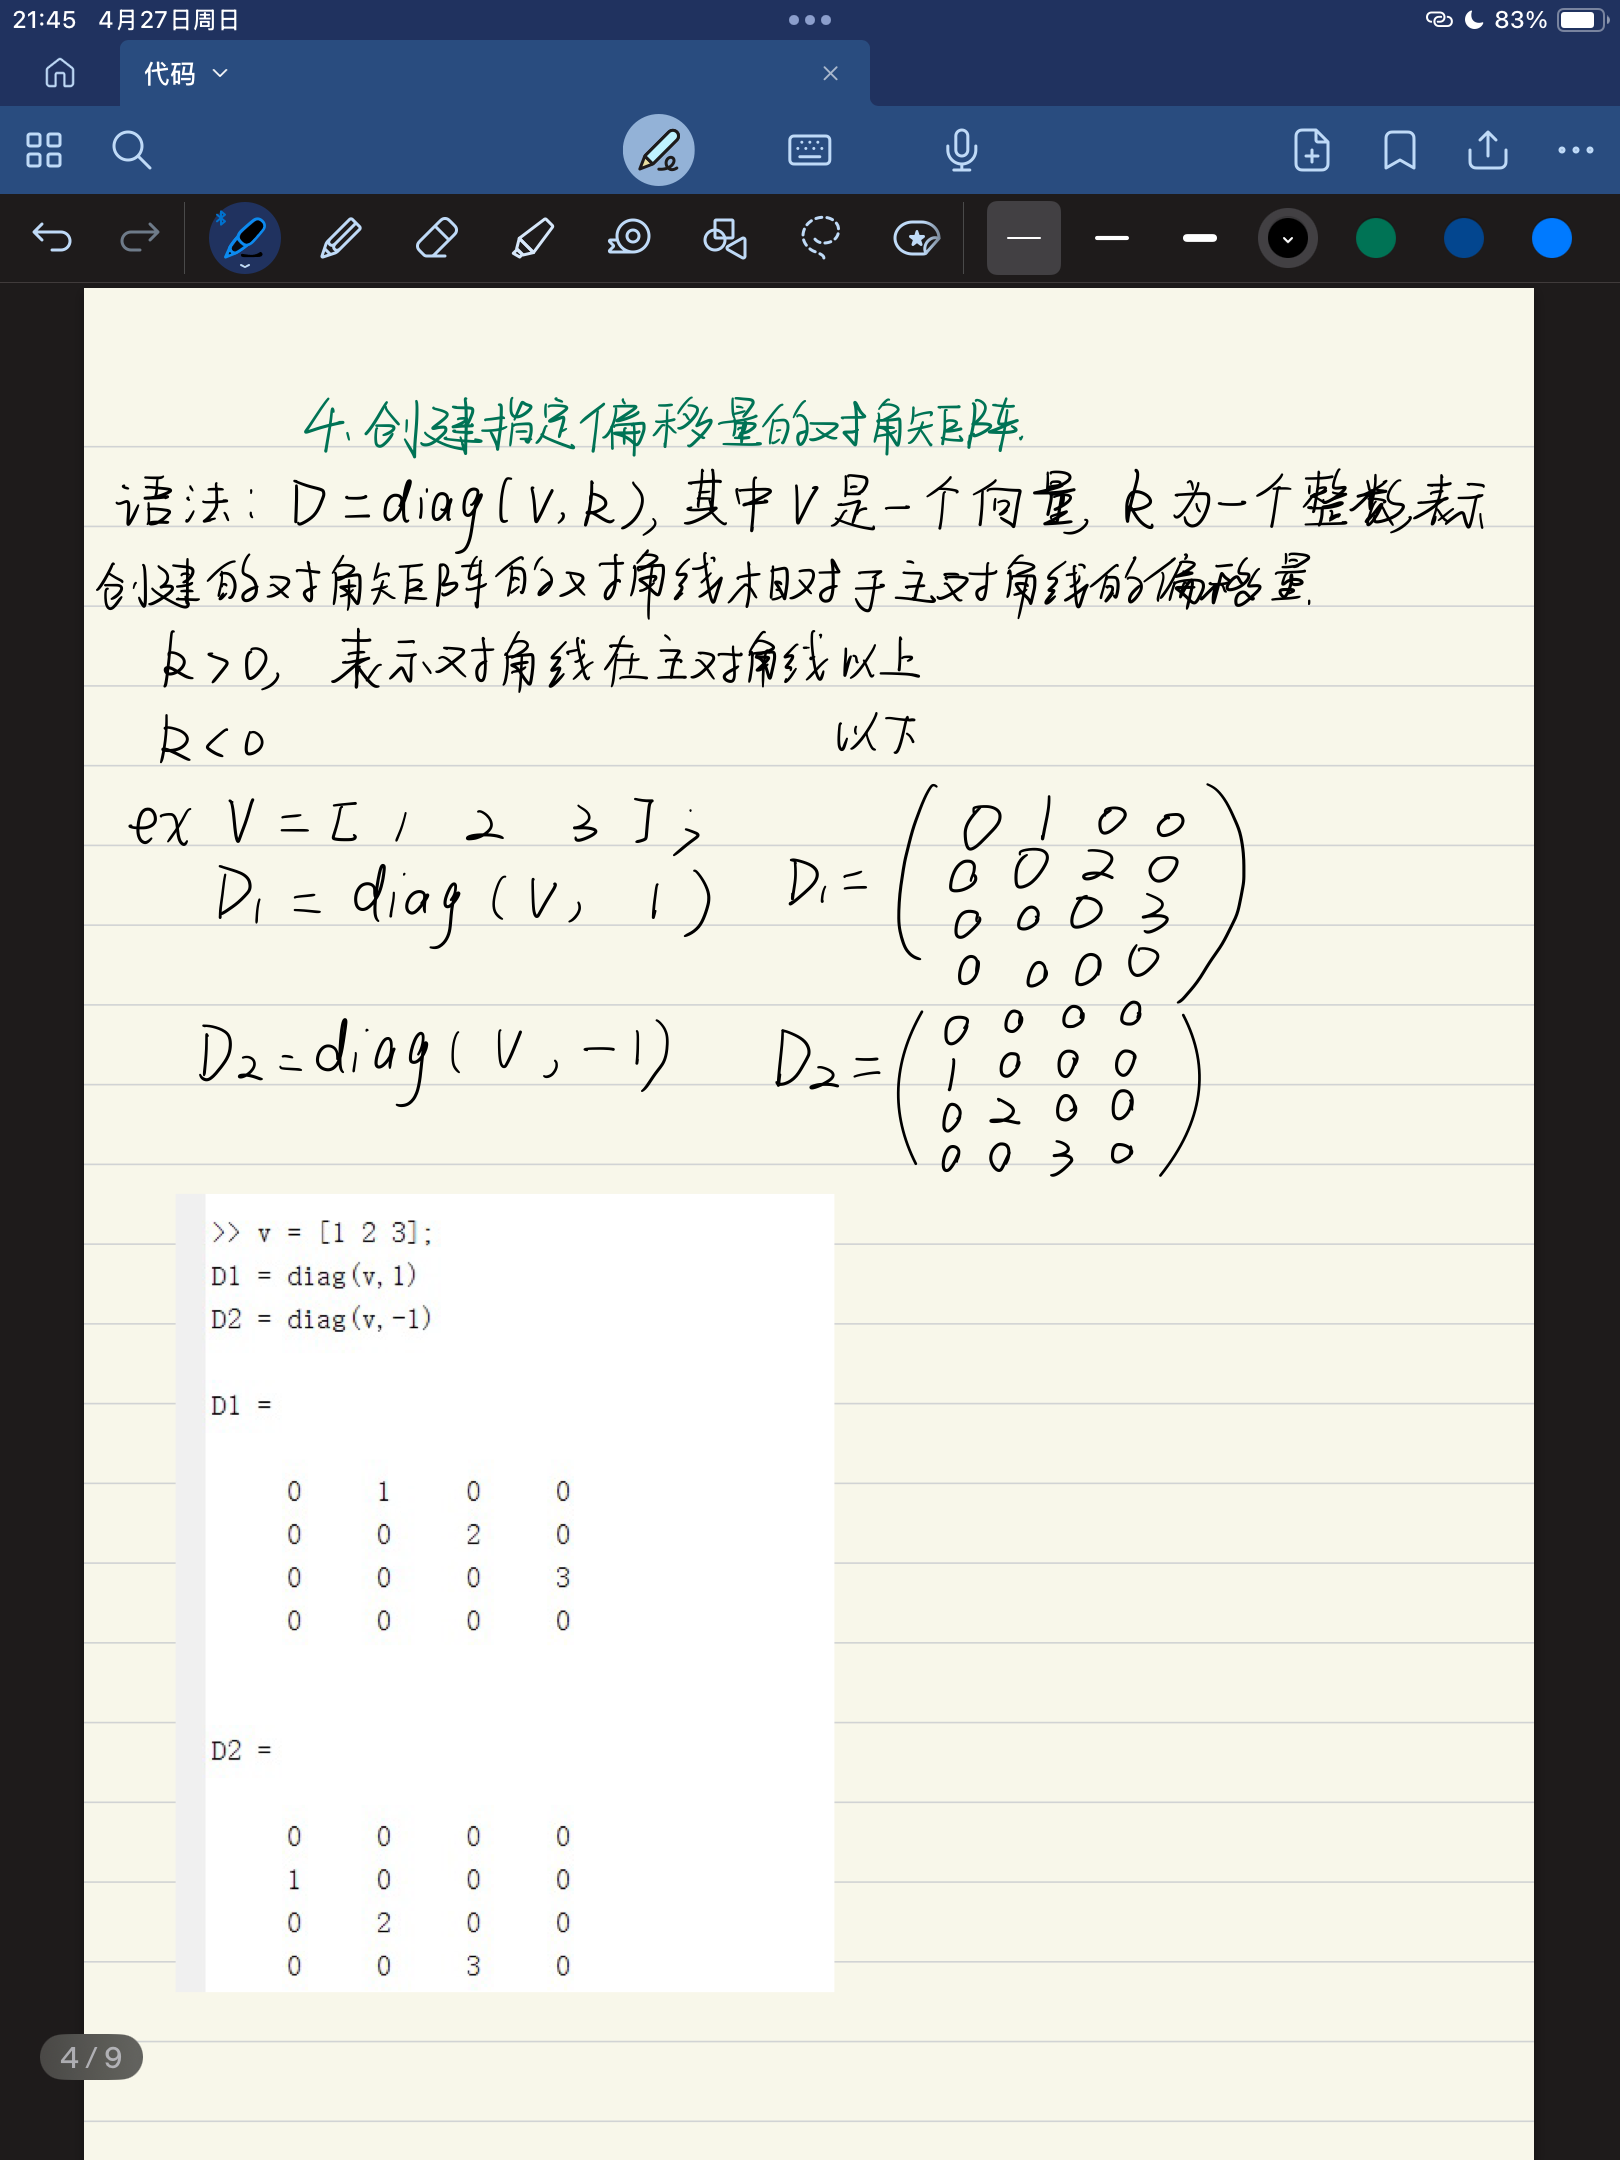 21:45 4月27日周日 83%
代码
4.创建指定偏移量的对角矩阵.
语法: D=diag(V,k),其中V是一个向量,k为一个整数,表示
创建的对角矩阵的对角线相对于主对角线的偏移量.
k>0, 表示对角线在主对角线以上
k<0 以下
ex V=[1 2 3];
D1=diag(V, 1) D1=
0 1 0 0
0 0 2 0
0 0 0 3
0 0 0 0
D2=diag(V,-1) D2=
0 0 0 0
1 0 0 0
0 2 0 0
0 0 3 0
>> v = [1 2 3];
D1 = diag(v,1)
D2 = diag(v,-1)
D1 =
0 1 0 0
0 0 2 0
0 0 0 3
0 0 0 0
D2 =
0 0 0 0
1 0 0 0
0 2 0 0
0 0 3 0
4/9